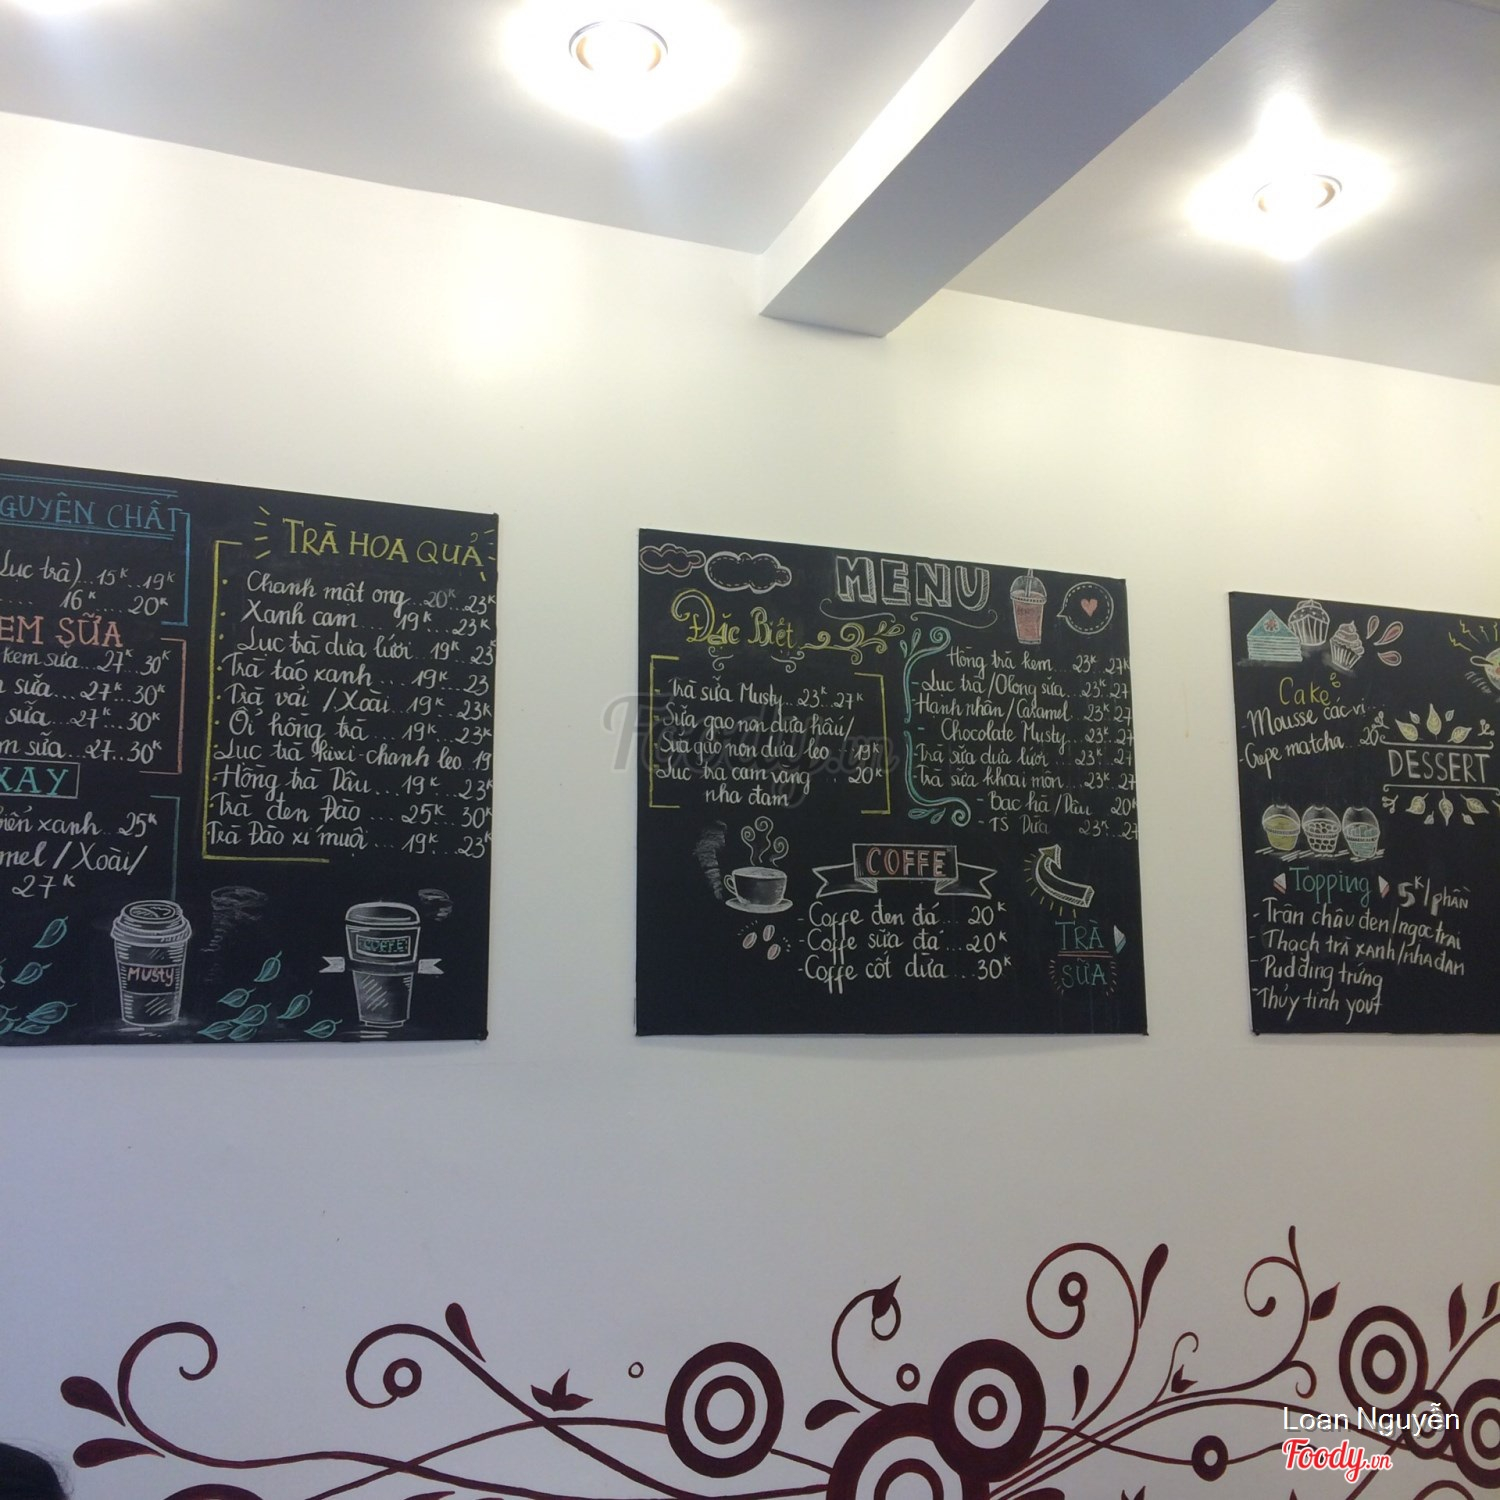 GUYÊN CHẤT
Lục trà)...15K..19K
16K......20K
EM SỮA
kem sữa...27K..30K
sữa...27K..30K
sữa...27K..30K
sữa...27..30K
XAY
xanh..25K
mel /Xoài/
27K
Musty
TRÀ HOA QUẢ
Chanh mật ong...20K...23K
Xanh cam....19K...23K
Lục trà dưa lưới 19K...23
Trà táo xanh...19K...23
Trà vải /Xoài..19K...23K
Ổi hồng trà...19K...23K
Lục trà kiwi-chanh leo 19
Hồng trà Dâu...19K...23K
Trà đen Đào...25K...30K
Trà Đào xí muội...19K...23K
COFFE
MENU
Đặc Biệt
- Trà sữa Musty...23K..27K
Sữa gạo non dưa hấu/
Sữa gạo non dưa leo...19K
Lục trà cam vàng 20K
nha đam
Hồng trà kem...23K..27K
- Lục trà/Olong sữa...23K.27
- Hạnh nhân/Caramel..23K.27
- Chocolate Musty...23K.27
- Trà sữa dưa lưới...23K.27
- Trà sữa khoai môn...23K.27
- Bạc hà/Dâu 20K
- TS Dừa 23K..27
COFFE
- Coffe đen đá...20K
- Coffe sữa đá...20K
- Coffe cốt dừa...30K
TRÀ
SỮA
Cake
- Mousse các vị...
- Crepe matcha..20K
DESSERT
Topping 5K/phần
- Trân châu đen/ngọc trai
- Thạch trà xanh/nha đam
- Pudding trứng
- Thủy tinh
Foody.vn
Loan Nguyễn
Foody.vn